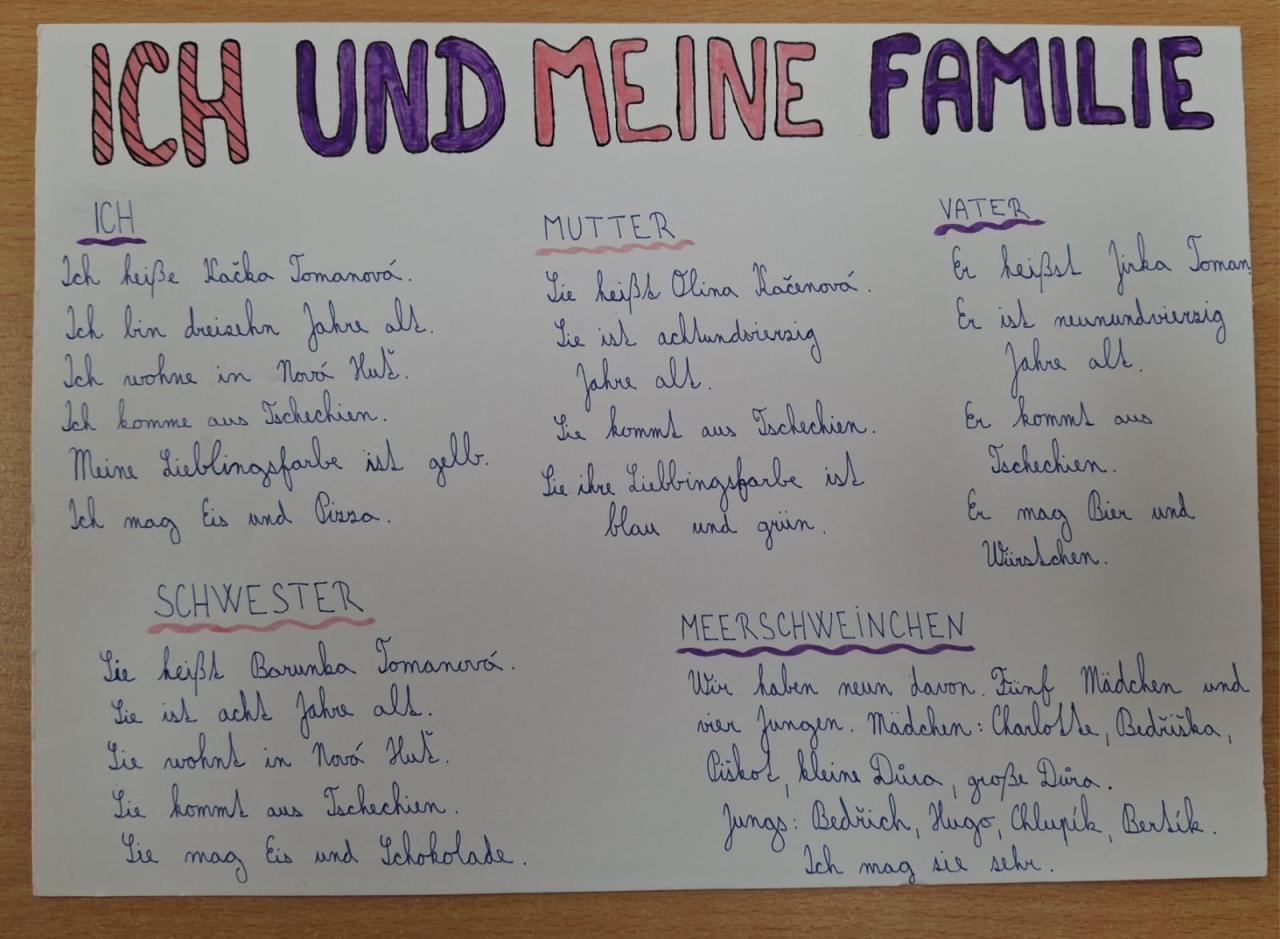 ICH UND MEINE FAMILIE
ICH
Ich heiße Kačka Tomanová.
Ich bin dreizehn Jahre alt.
Ich wohne in Nová Huť.
Ich komme aus Tschechien.
Meine Lieblingsfarbe ist gelb.
Ich mag Eis und Pizza.
MUTTER
Sie heißt Olina Kačenová.
Sie ist achtundvierzig
Jahre alt.
Sie kommt aus Tschechien.
Sie ihre Liebbingsfarbe ist
blau und grün.
VATER
Er heißst Jirka Toman.
Er ist neunundvierzig
Jahre alt.
Er kommt aus
Tschechien.
Er mag Bier und
Würstchen.
SCHWESTER
Sie heißt Barunka Tomanová.
Sie ist acht Jahre alt.
Sie wohnt in Nová Huť.
Sie kommt aus Tschechien.
Sie mag Eis und Schokolade.
MEERSCHWEINCHEN
Wir haben neun davon. Fünf Mädchen und
vier Jungen. Mädchen: Charlotte, Bedřiška,
Piškot, kleine Důra, große Důra.
Jungs: Bedřich, Hugo, Chlupík, Bertík.
Ich mag sie sehr.